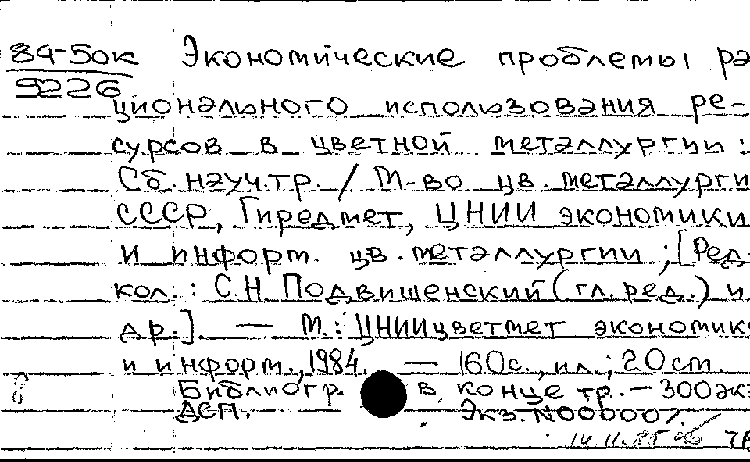 84-5ок Экономические проблемы ра
9226
ционального использования ре-
сурсов в цветной металлургии:
Сб. науч. тр. / М-во цв. металлурги
СССР, Гиредмет, ЦНИИ экономики
и информ. цв. металлургии; [Ред-
кол.: С.Н. Подвишенский (гл. ред.) и
др.]. — М.: ЦНИИцветмет экономик
и информ., 1984. — 160 с., ил.; 20 см.
Библиогр. в конце тр. — 300 эк
ДСП. Экз. N00000